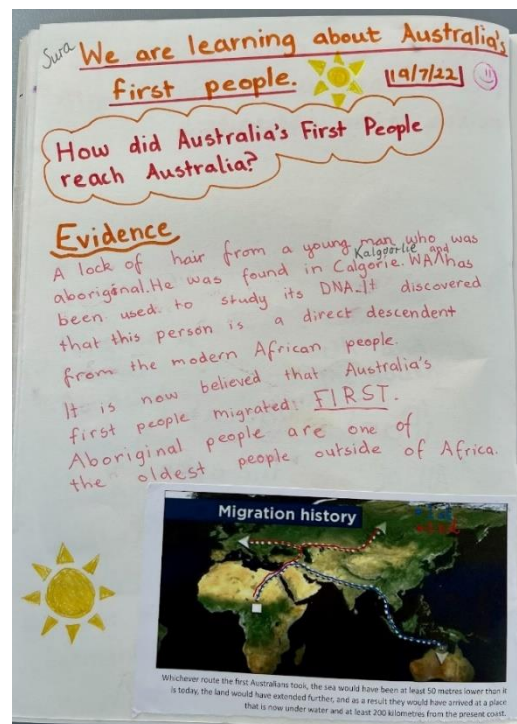 Sura
We are learning about Australia's
first people.
19/7/22
How did Australia's First People
reach Australia?
Evidence
A lock of hair from a young man who was
Kalgoorlie and
aboriginal. He was found in Calgorie. WA has
been used to study its DNA. It discovered
that this person is a direct descendent
from the modern African people.
It is now believed that Australia's
first people migrated FIRST.
Aboriginal people are one of
the oldest people outside of Africa.
Migration history
Whichever route the first Australians took, the sea would have been at least 50 metres lower than it
is today, the land would have extended further, and as a result they would have arrived at a place
that is now under water and at least 200 kilometres from the present coast.